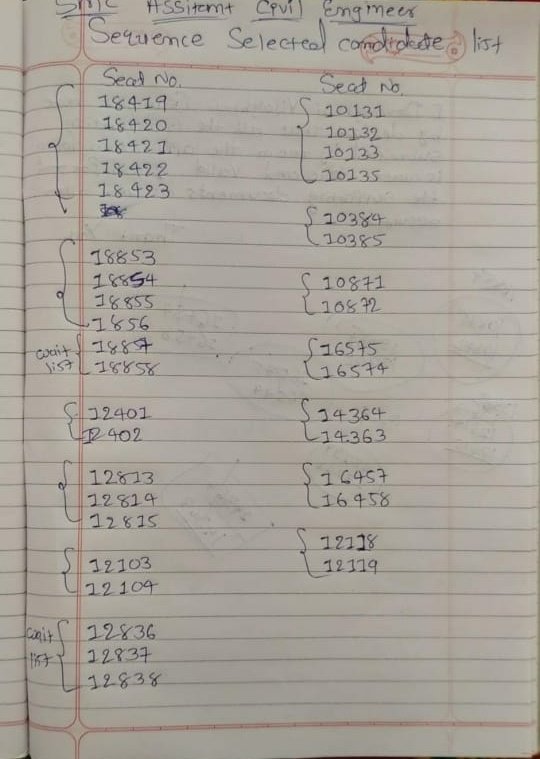 SMC Assitemt Civil Engineer
Sequence Selected candidate list
Seat No.
18419
18420
18421
18422
18423
18853
18854
18855
1856
wait list
18857
18858
12401
12402
12813
12814
12815
12103
12104
wait list
12836
12837
12838
Seat No.
10131
10132
10133
10135
10384
10385
10871
10872
16575
16574
14364
14363
16457
16458
12118
12119